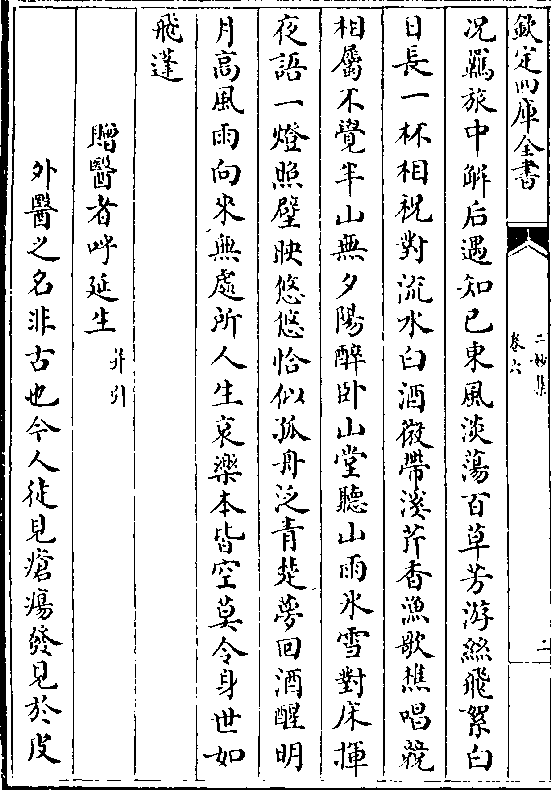 欽定四庫全書
二妙集
卷六
二
况羈旅中解后遇知已東風淡蕩百草芳游絲飛絮白
日長一杯相祝對流水白酒微帶溪芹香漁歌樵唱競
相屬不覺半山無夕陽醉卧山堂聽山雨氷雪對床揮
夜語一燈照壁映悠悠恰似孤舟泛青楚夢回酒醒明
月高風雨向来無處所人生哀樂本皆空莫令身世如
飛蓬
贈醫者呼延生
并引
外醫之名非古也今人徒見瘡瘍發見於皮